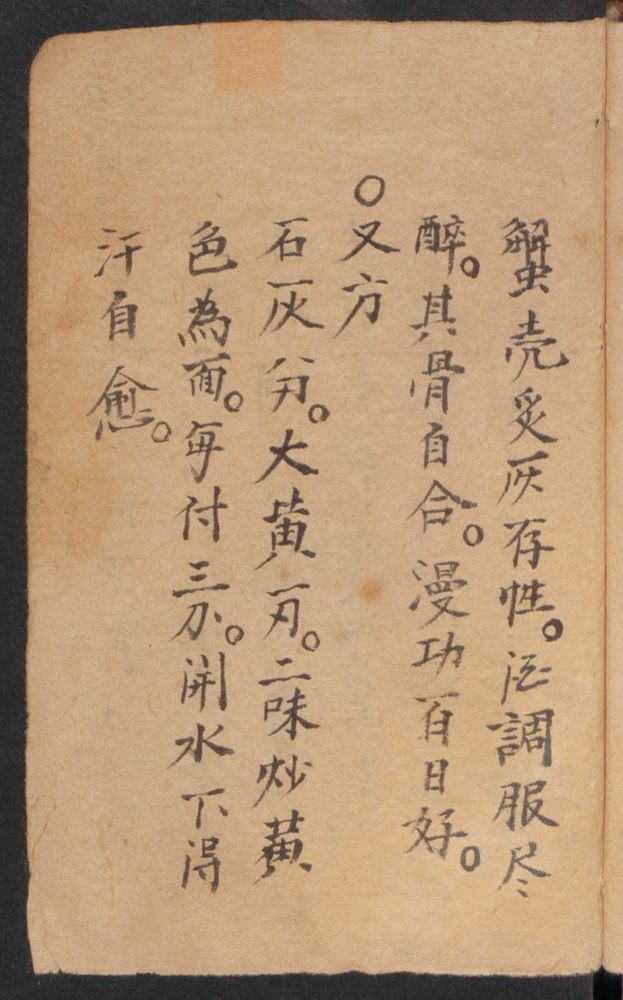 蟹壳炙灰存性。酒調服尽
醉。其骨自合。漫功百日好。
○又方
石灰 。大黄一 。二味炒黄
色為面。每付三 。開水下得
汗自愈。